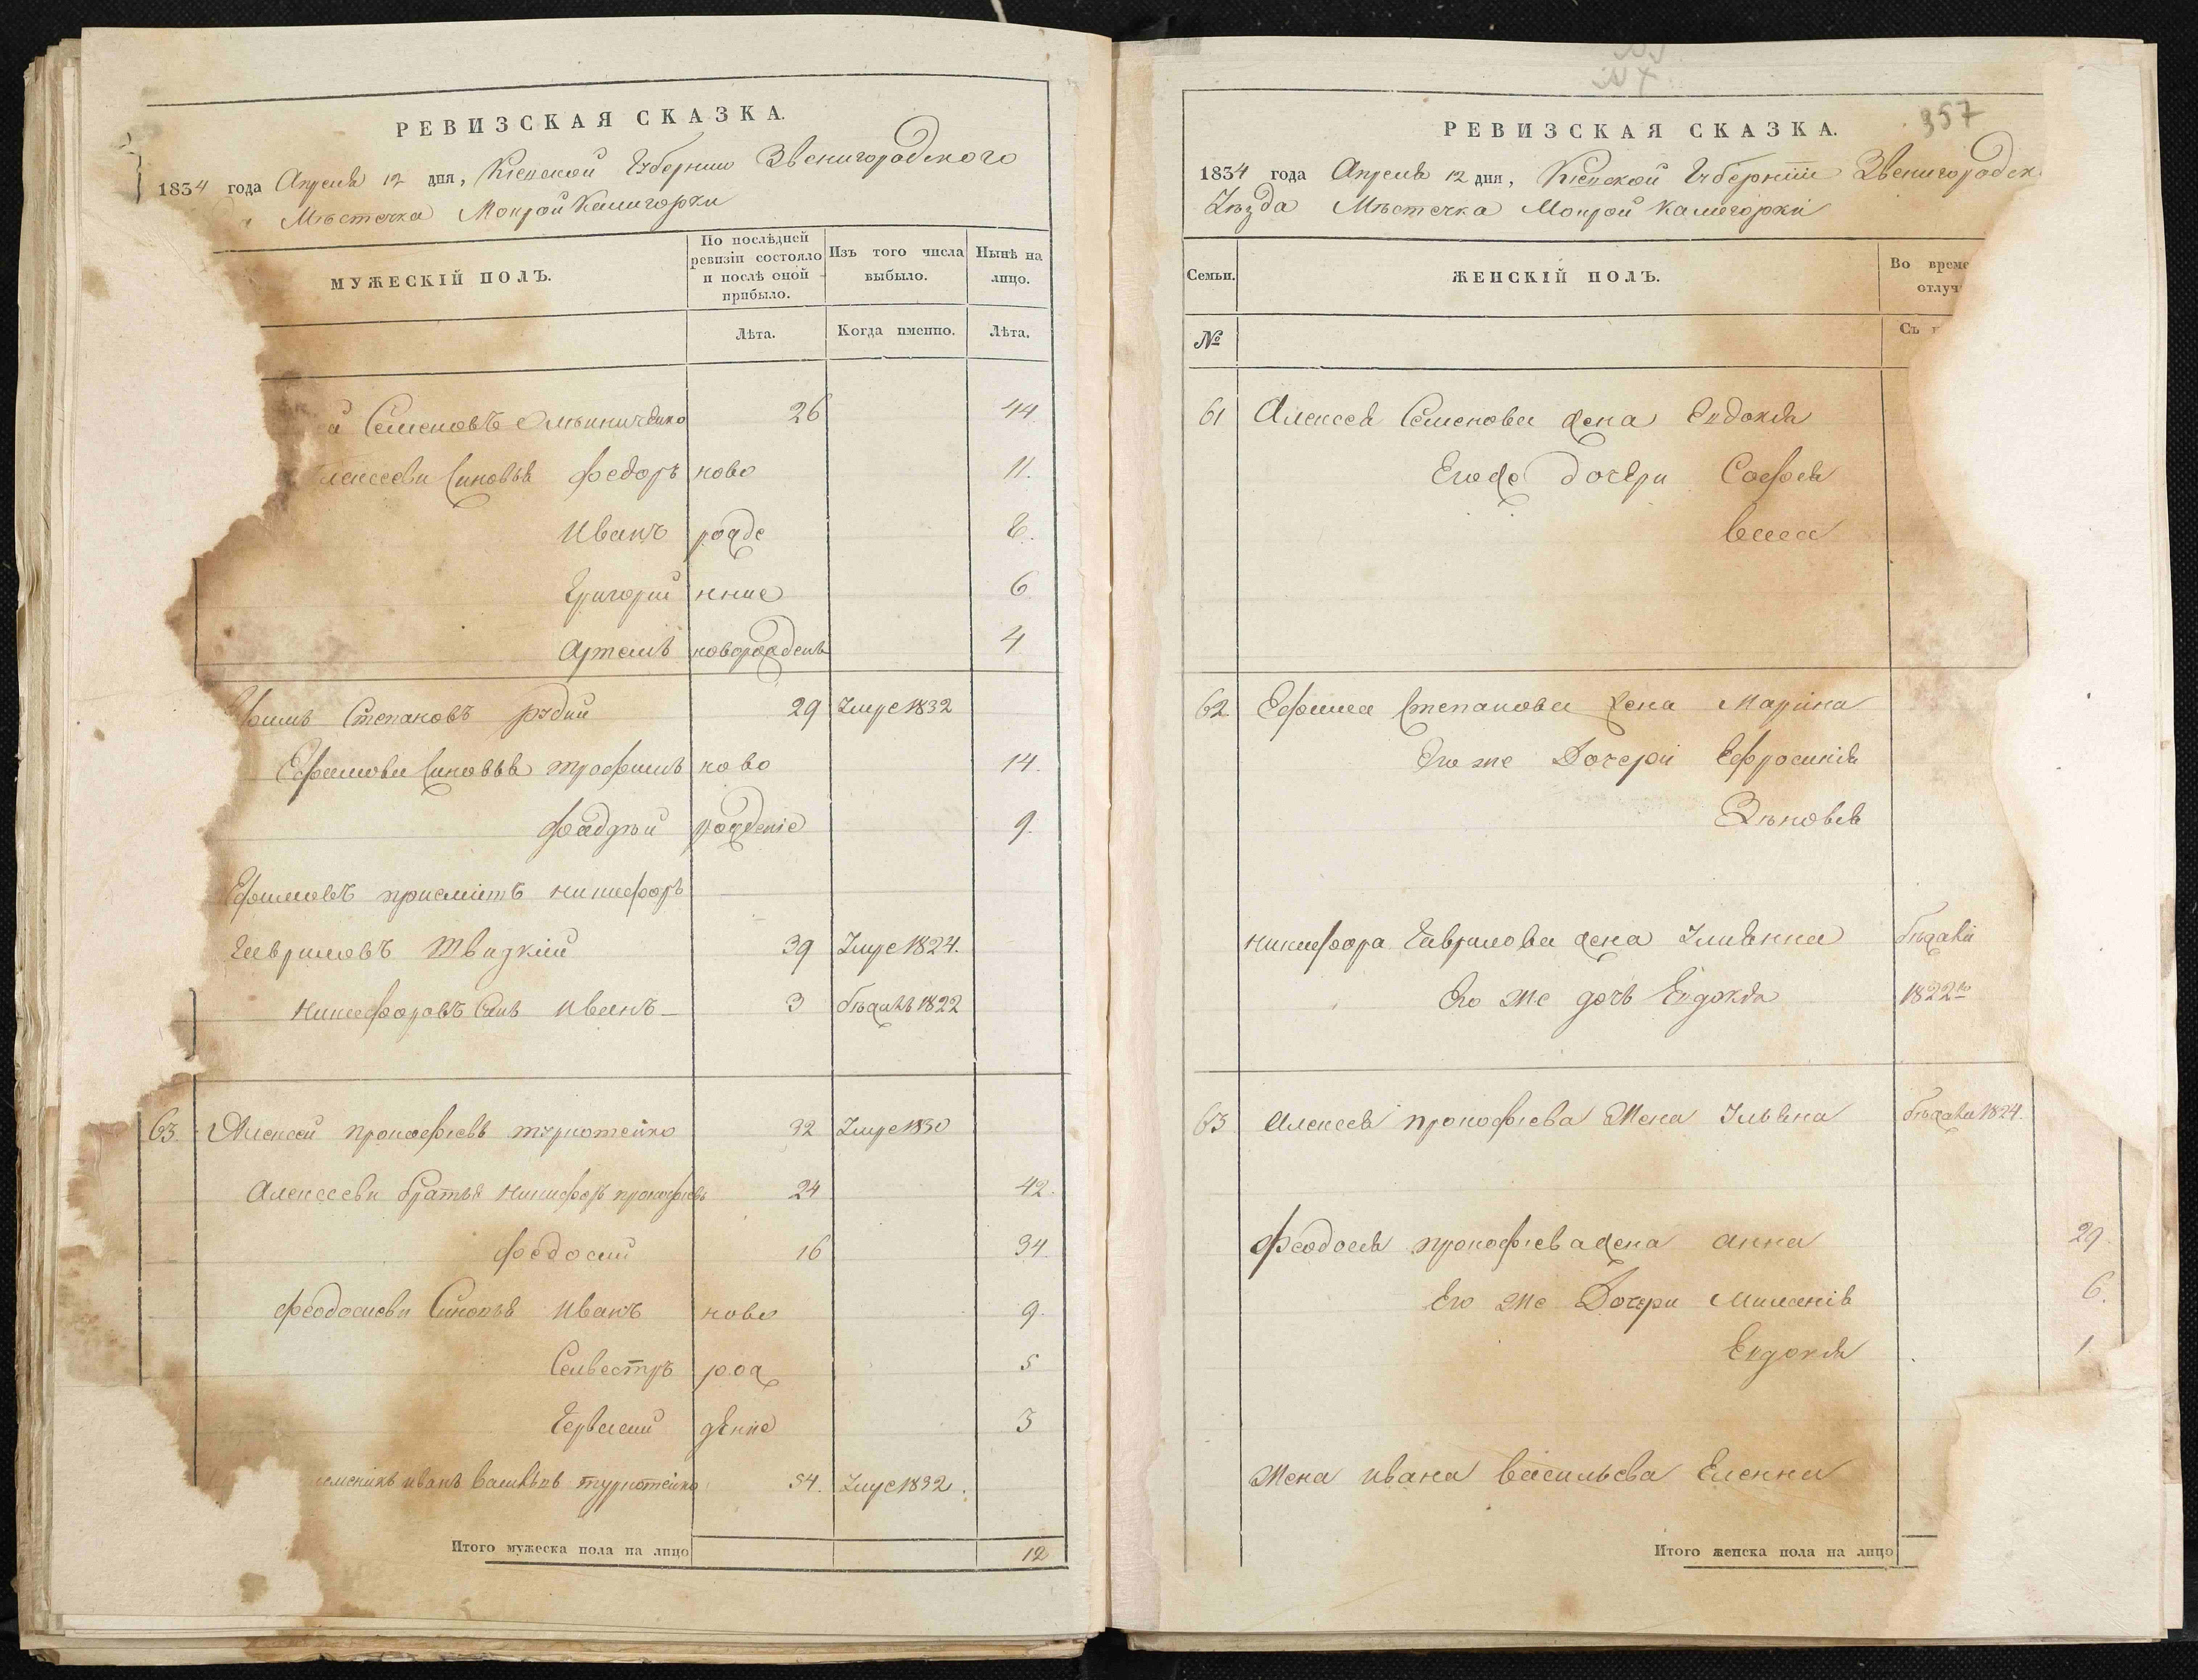 РЕВИЗСКАЯ СКАЗКА.
1834 года Апреля 12 дня, Кіевской Губерніи Звенигородского
Мѣстечка Мокрой Калигорки
МУЖЕСКІЙ ПОЛЪ.
По послѣдней ревизіи состояло и послѣ оной прибыло.
Изъ того числа выбыло.
Нынѣ на лицо.
Лѣта.
Когда именно.
Лѣта.
Семеновъ 26 44
Синовья Федоръ ново 11.
Иванъ рожде 8.
Григорий ние 6
Артемъ новорожденъ 4
Степановъ Рудий 29 Умре 1832
Ефимови Синовья Трофимъ ново 14.
Фадѣй рожденіе 9.
Ефимовъ приємитъ Никифоръ
Гавриловъ Швидкій 39 Умре 1824.
Никифоровъ Синъ Иванъ 3 бѣжалъ 1822
63 Алексей Прокофіевъ 32 Умре 1830
Алексееви братья Никифоръ Прокофіевъ 24 42.
Федосий 16 34
Феодосиеви Синовья Иванъ ново 9.
Селвестръ рож 5
Герваситй дение 3
Иванъ 54. Умре 1832.
Итого мужеска пола на лицо 12
357
РЕВИЗСКАЯ СКАЗКА.
1834 года Апреля 12 дня, Кіевской Губерніи Звенигородск
Уѣзда Мѣстечка Мокрой Калигорки
Семьи.
ЖЕНСКІЙ ПОЛЪ.
Во време
отлуч
№
Съ
61 Алексея Семенова жена Евдокия
Егоже дочери Софея
62 Ефима Степанова жена Марина
Его же Дочери Ефросиния
Зѣновья
Никифора Гаврилова жена Улиянна бѣжали
Его же дочь Евдокия 1822го
63 Алексея Прокофіева Жена Ульяна бѣжала 1824.
Феодосия Прокофіева жена Анна 29.
Его же Дочери Миланія 6.
Евдокия 1
Жена Ивана Васильева Еленна
Итого женска пола на лицо